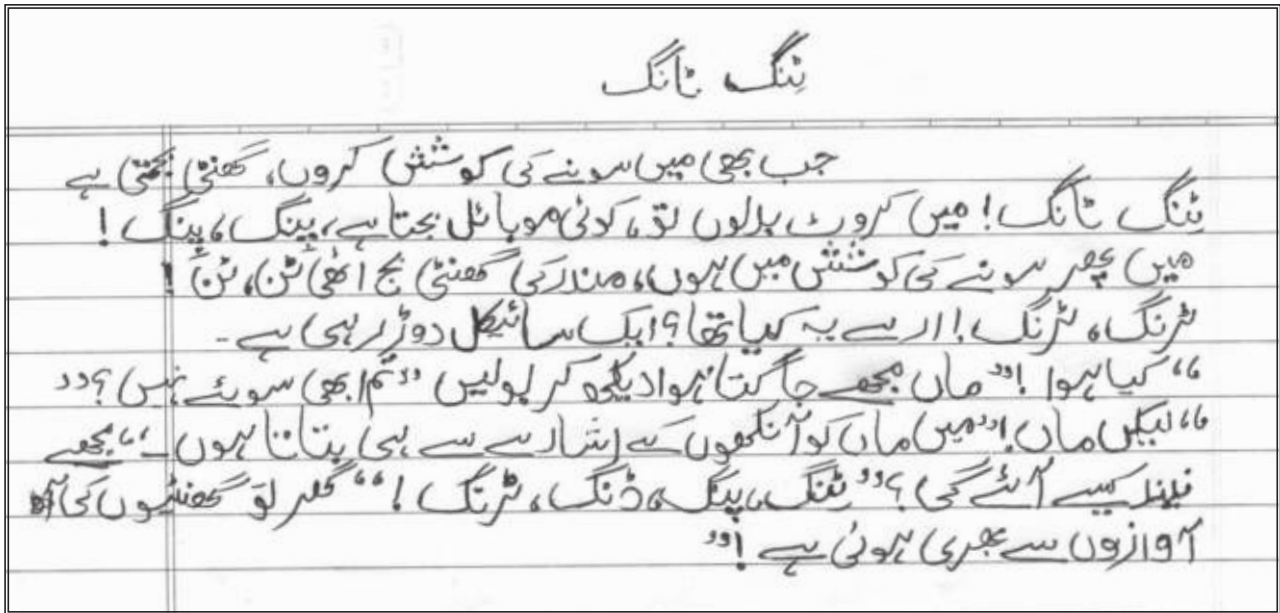 ٹِنگ ٹانگ
جب بھی میں سونے کی کوشش کروں، گھنٹی بجتی ہے
ٹِنگ ٹانگ! میں کروٹ بدلوں تو، کوئی موبائل بجتا ہے، پینگ، پینگ!
میں پھر سونے کی کوشش میں ہوں، مندر کی گھنٹی بج اٹھی ٹن، ٹن!
ٹرنگ، ٹرنگ! ارے یہ کیا تھا؟ ایک سائیکل دوڑ رہی ہے۔
“کیا ہوا!” ماں مجھے جاگتا ہوا دیکھ کر بولیں “تم ابھی سوئے نہیں؟”
“لیکن ماں!” میں ماں کو آنکھوں کے اشارے سے ہی بتاتا ہوں۔ “مجھے
نیند کیسے آئے گی؟” ٹِنگ، پینگ، ڈنگ، ٹرنگ! “گھر تو گھنٹیوں کی
آوازوں سے بھری ہوئی ہے!”